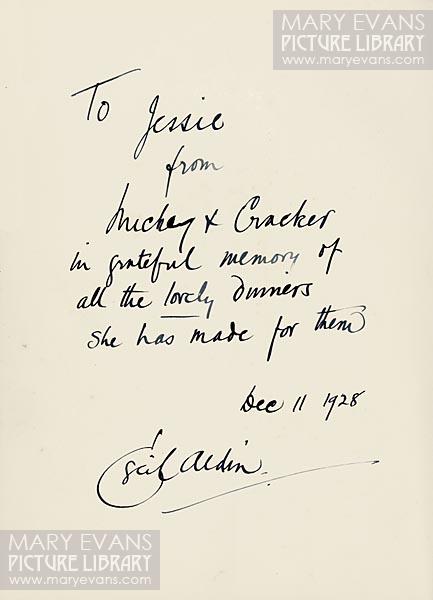 MARY EVANS
PICTURE LIBRARY
www.maryevans.com
To Jessie
from
Mickey & Cracker
in grateful memory of
all the lovely dinners
she has made for them
Dec 11 1928
Cecil Aldin
MARY EVANS
PICTURE LIBRARY
www.maryevans.com
MARY EVANS
PICTURE LIBRARY
www.maryevans.com